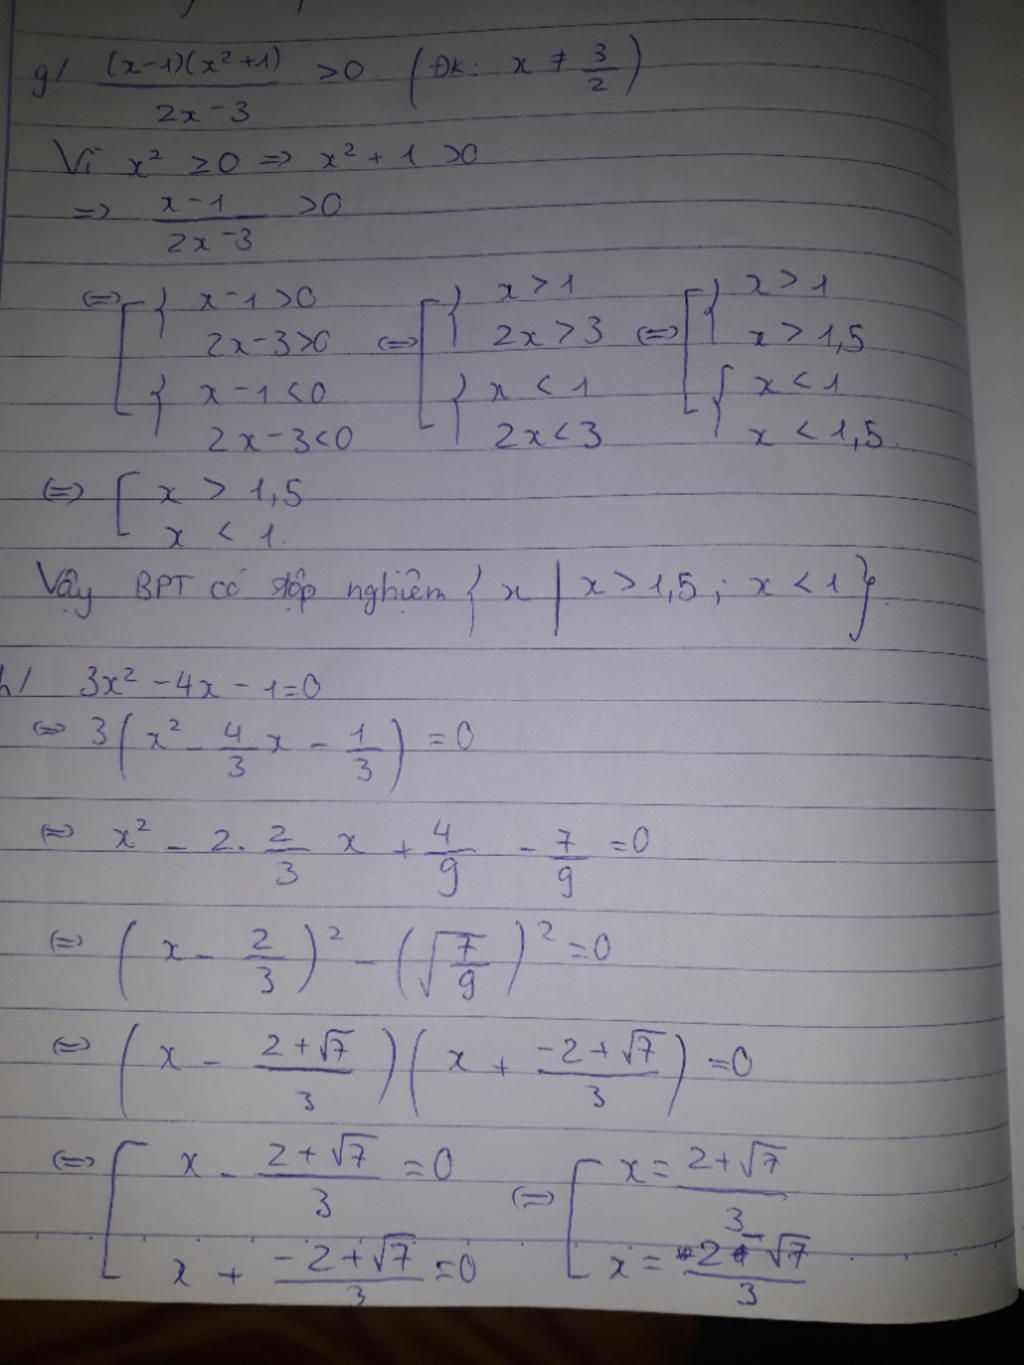 g/ (x-1)(x²+1) / 2x-3 >0 (ĐK: x ≠ 3/2)
Vì x² ≥0 => x²+1 >0
=> x-1 / 2x-3 >0
<=> [ { x-1>0 <=> [ { x>1 <=> [ { x>1
2x-3>0 2x>3 x>1,5
{ x-1<0 { x<1 { x<1
2x-3<0 2x<3 x<1,5.
<=> [ x > 1,5
x < 1.
Vậy BPT có tập nghiệm { x | x>1,5; x<1}.
h/ 3x²-4x-1=0
<=> 3(x² - 4/3 x - 1/3) =0
<=> x² - 2. 2/3 x + 4/9 - 7/9 =0
<=> (x - 2/3)² - (√7/9)² =0
<=> (x - 2+√7 / 3)(x + -2+√7 / 3) =0
<=> [ x - 2+√7 / 3 =0 <=> [ x= 2+√7 / 3
x + -2+√7 / 3 =0 x= 2-√7 / 3